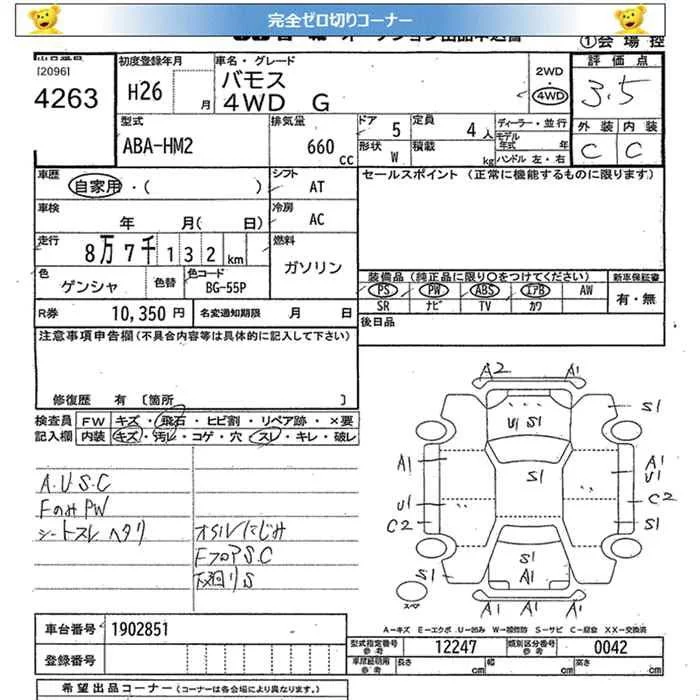 完全ゼロ切りコーナー
①会場控
出品番号
[2096]
4263
初度登録年月
H26 月
車名・グレード
バモス
4WD G
2WD
4WD
評価点
3.5
外装 内装
C C
型式
ABA-HM2
排気量
660 cc
ドア 5
定員 4人
形状 W
積載 kg
ディーラー・並行
モデル年式 年
ハンドル 左・右
車歴
自家用・( )
シフト
AT
セールスポイント (正常に機能するものに限ります)
車検
年 月( 日)
冷房
AC
走行
8万7千132km
燃料
ガソリン
色
ゲンシャ
色替
色コード
BG-55P
装備品(純正品に限り○をつけてください)
PS PW ABS エアB AW
SR ナビ TV カワ
新車保証書
有・無
後日品
R券 10,350円
名変通知期限 月 日
注意事項申告欄(不具合内容等は具体的に記入して下さい)
修復歴 有 [箇所 ]
検査員 FW キズ・飛石・ヒビ割・リペア跡・×要
記入欄 内装 キズ・汚レ・コゲ・穴・スレ・キレ・破レ
A.U.S.C
FのみPW
シートスレ ヘタリ
オイルにじみ
FフロアS.C
下廻りS
A2 A1
S1
U1 S1
A1
S1
A1
U1
U1
C2
C2
S1
S1
S1
A1
スペア
A1 A1 A1
A-キズ E-エクボ U-凹み W-補修跡 S-サビ C-腐食 XX-交換済
車台番号 1902851
登録番号
型式指定番号 参考 12247
類別区分番号 参考 0042
車庫証明用 参考
長さ cm
幅 cm
高さ cm
希望出品コーナー(コーナーは各会場により異なります。)